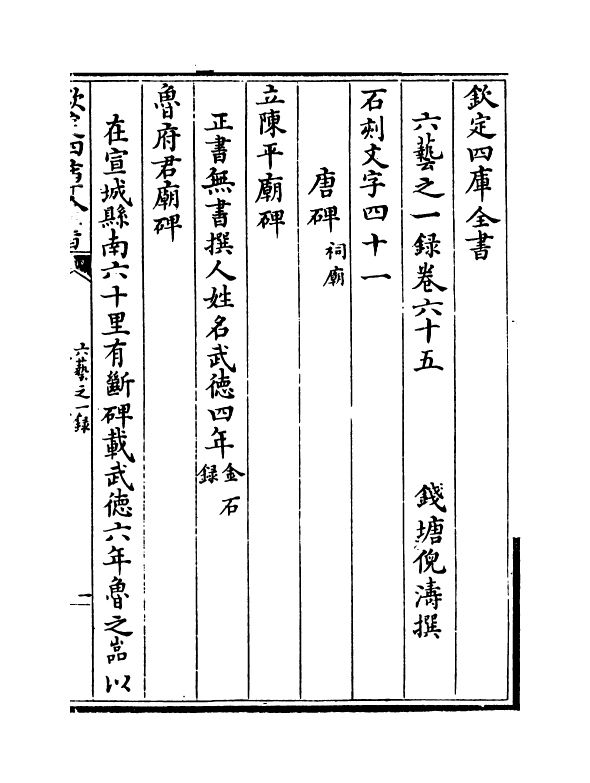 欽定四庫全書
六藝之一録卷六十五　　　錢塘倪濤撰
石刻文字四十一
唐碑祠廟
立陳平廟碑
正書無書撰人姓名武徳四年金石録
魯府君廟碑
在宣城縣南六十里有斷碑載武徳六年魯之嵓以
欽定四庫全書
六藝之一録
一